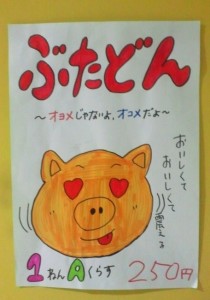 ぶたどん
～オヨメじゃないよ、オコメだよ～
おいしくて
おいしくて
震える
1ねんAくらす
250円